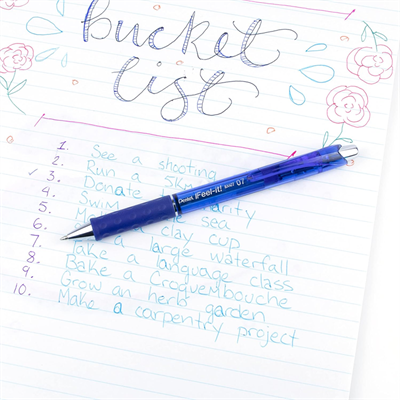 bucket
list
1. See a shooting
2. Run a 5Km
✓ 3. Donate charity
4. Swim sea
5. a clay cup
6. a large waterfall
7. Take a language class
8. Bake a Croquembouche
9. Grow an herb garden
10. Make a carpentry project
Pentel iFeel-it! BX467 07